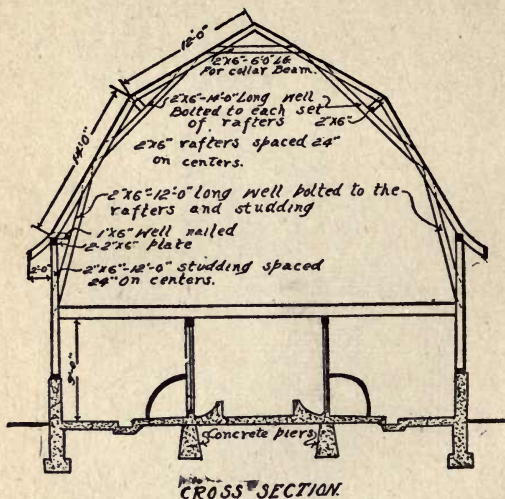 12'-0"
2"X6"-6'-0" LG.
For collar Beam.
2"X6"-14'-0" Long well
Bolted to each set
of rafters
2"X6"
14'-0"
2"X6" rafters spaced 24"
on centers.
2"X6"-12'-0" long well bolted to the
rafters and studding
1"X6" well nailed
2-2"X6" plate
2'-0"
2"X6"-12'-0" studding spaced
24" on centers.
Concrete piers
CROSS SECTION.